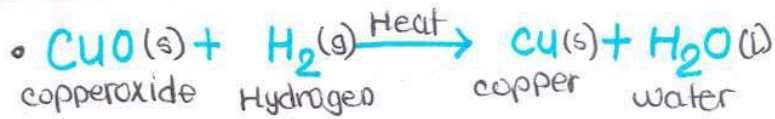 • CuO(s) + H₂(g) Heat→ Cu(s) + H₂O(l)
copperoxide Hydrogen copper water